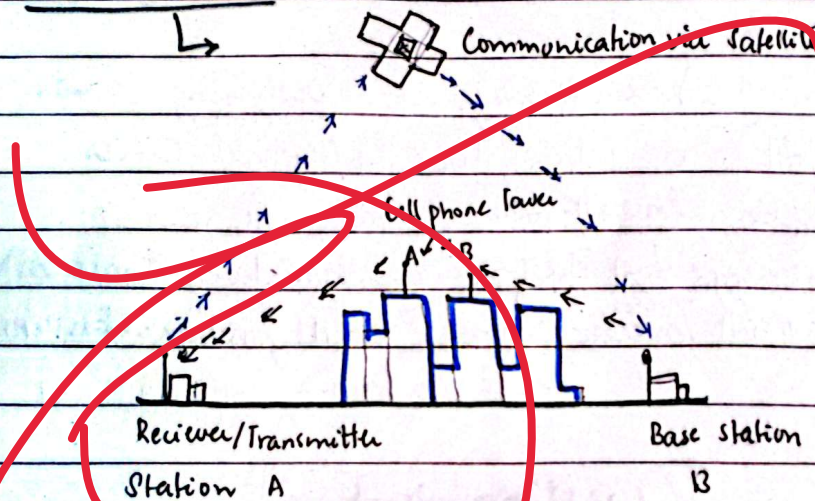 Communication via Satellit
Cell phone Tower
A B
Reciever/Transmitter
Station A
Base Station
B